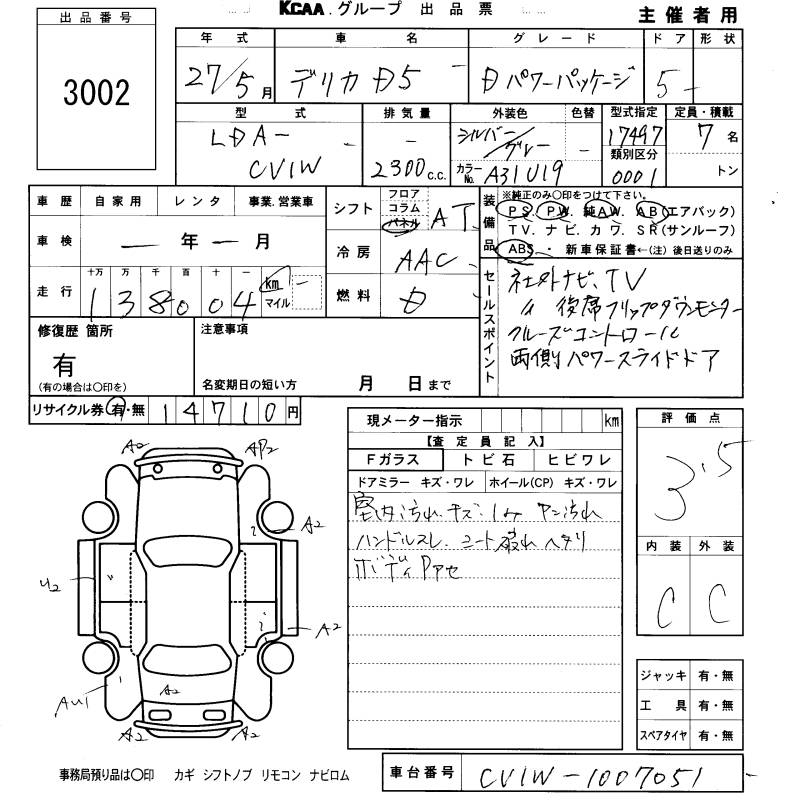 KCAA.グループ 出品票
主催者用
出品番号
3002
年式 車名 グレード ドア 形状
27/5月 デリカD5 - Dパワーパッケージ 5 -
型式 排気量 外装色 色替 型式指定 定員・積載
LDA- - シルバー/グレー - 17497 7名
類別区分
CV1W - 2300c.c. カラーNo. A31U19 0001 トン
車歴 自家用 レンタ 事業.営業車
シフト フロア コラム パネル AT
装備品 ※純正のみ〇印をつけて下さい。
PS. PW. 純AW. AB(エアバック)
TV. ナビ. カワ. SR(サンルーフ)
ABS ・ 新車保証書←(注)後日送りのみ
車検 ―年―月
冷房 AAC
走行 十万 万 千 百 十 一
138004 km マイル -
燃料 D
セールスポイント 社外ナビ、TV
〃 後席フリップダウンモニター
クルーズコントロール
両側パワースライドドア
修復歴 箇所 注意事項
有
(有の場合は〇印を) 名変期日の短い方 月 日まで
リサイクル券 有・無 14710円
現メーター指示 km
【査定員記入】
Fガラス トビ石 ヒビワレ
ドアミラー キズ・ワレ ホイール(CP) キズ・ワレ
室内汚れ.キズ.シミ テン汚れ
ハンドルスレ.シート破れ ヘタリ
ボディPアセ
評価点
3.5
内装 外装
C C
A2 AP2
A2
U2
A2
AU1 A2
A2 A2
ジャッキ 有・無
工具 有・無
スペアタイヤ 有・無
事務局預り品は〇印 カギ シフトノブ リモコン ナビロム
車台番号 CV1W-1007051